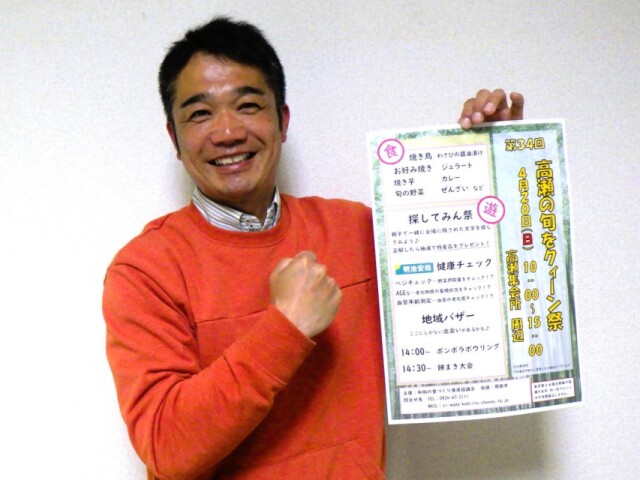 第34回
高瀬の旬をクィーン祭
4月20日(日) 10:00〜15:00
高瀬集会所 周辺
食
焼き鳥 わさびの醤油漬け
お好み焼き ジェラート
焼き芋 カレー
旬の野菜 ぜんざい など
遊
探してみん祭
親子で一緒に会場に隠された文字を探し
てみよう♪
正解したら抽選で特産品をプレゼント!
明治安田 健康チェック
ベジチェック
血管年齢測定
地域バザー
ここにしかない出会いがあるかも♪
14:00〜 ボンボラボウリング
14:30〜 餅まき大会